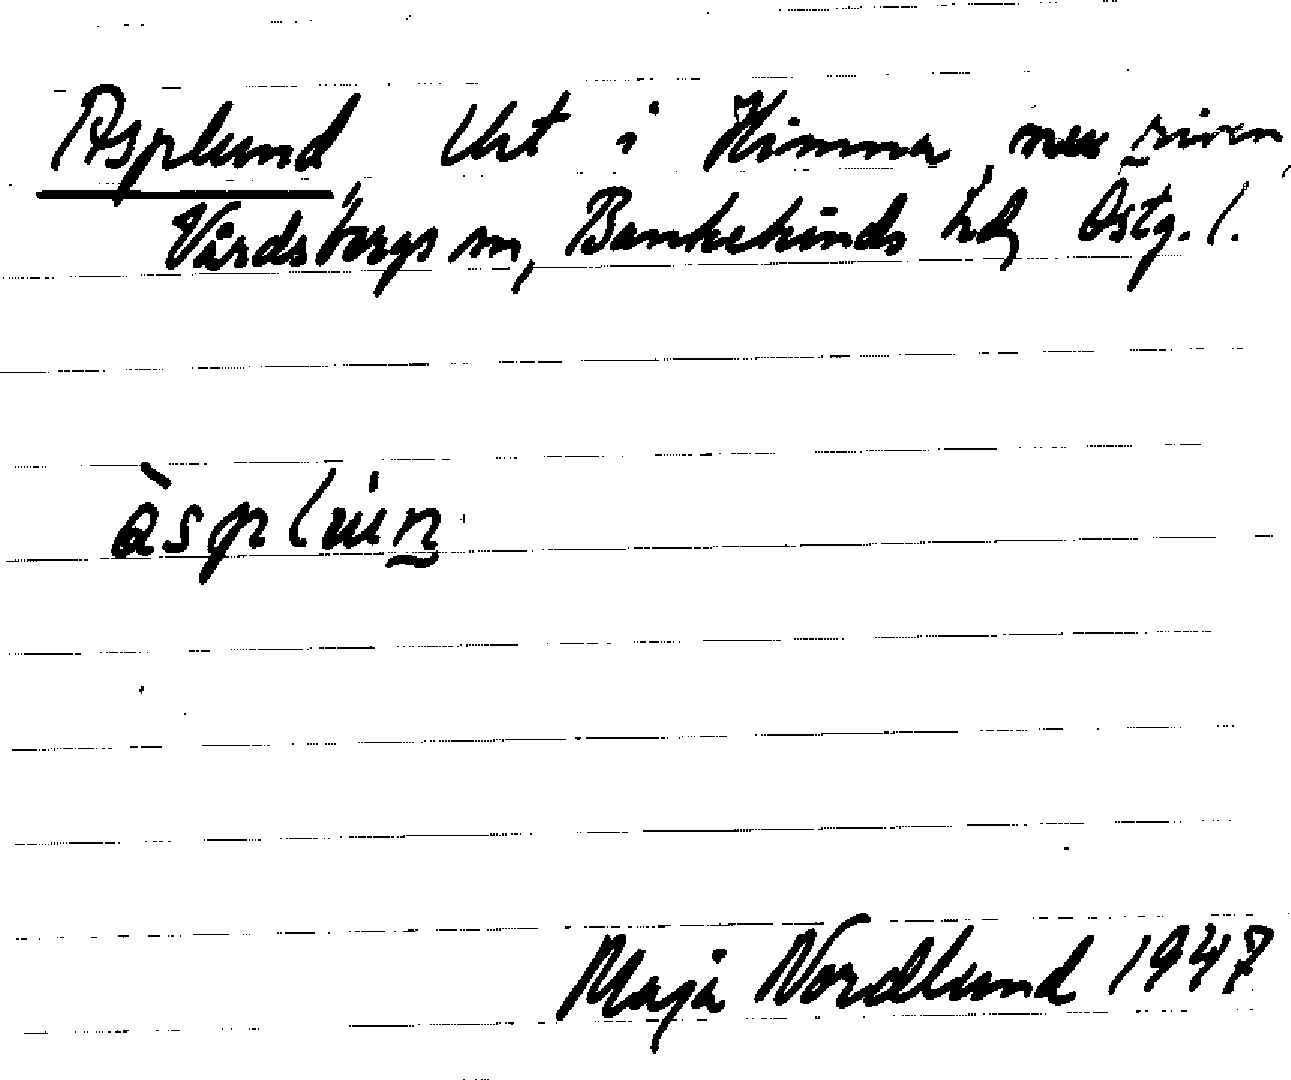 Asplund Urt i Himna, nu riven,
Vårdsbergs sn, Bankekinds hd, Östg. l.
àspluin
Maja Nordlund 1947